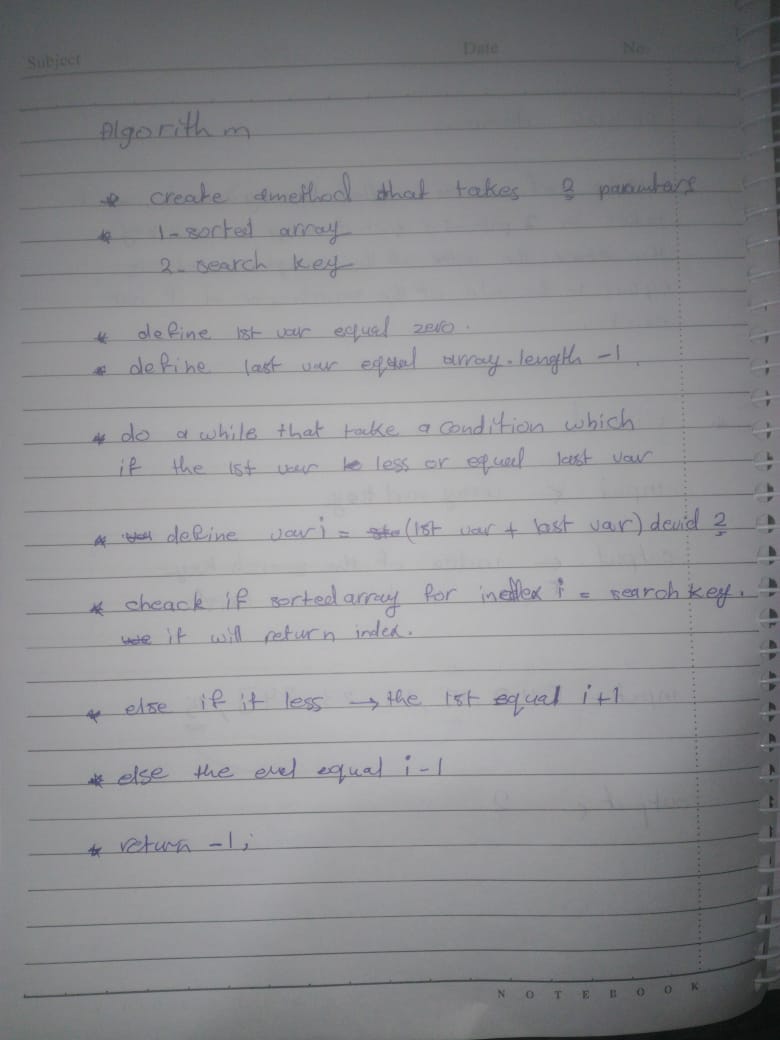 Subject Date No.
Algorithm
* create amethod that takes 2 paramters
* 1-sorted array
2-search key
* define 1st var equal zero.
* define last var equal array.length -1.
* do a while that take a condition which
if the 1st var less or equal last var
* define var i = (1st var + last var) devid 2
* cheack if sorted array for index i = search key.
it will return index.
* else if it less → the 1st equal i+1
* else the end equal i-1
* return -1;
NOTEBOOK